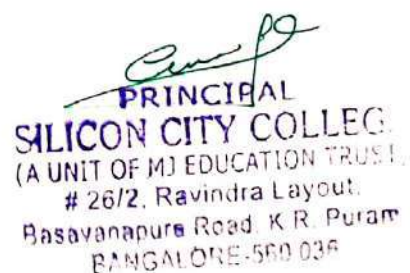 PRINCIPAL
SILICON CITY COLLEG
(A UNIT OF MJ EDUCATION TRUST,
# 26/2, Ravindra Layout,
Basavanapura Road, K.R. Puram
BANGALORE-560 036